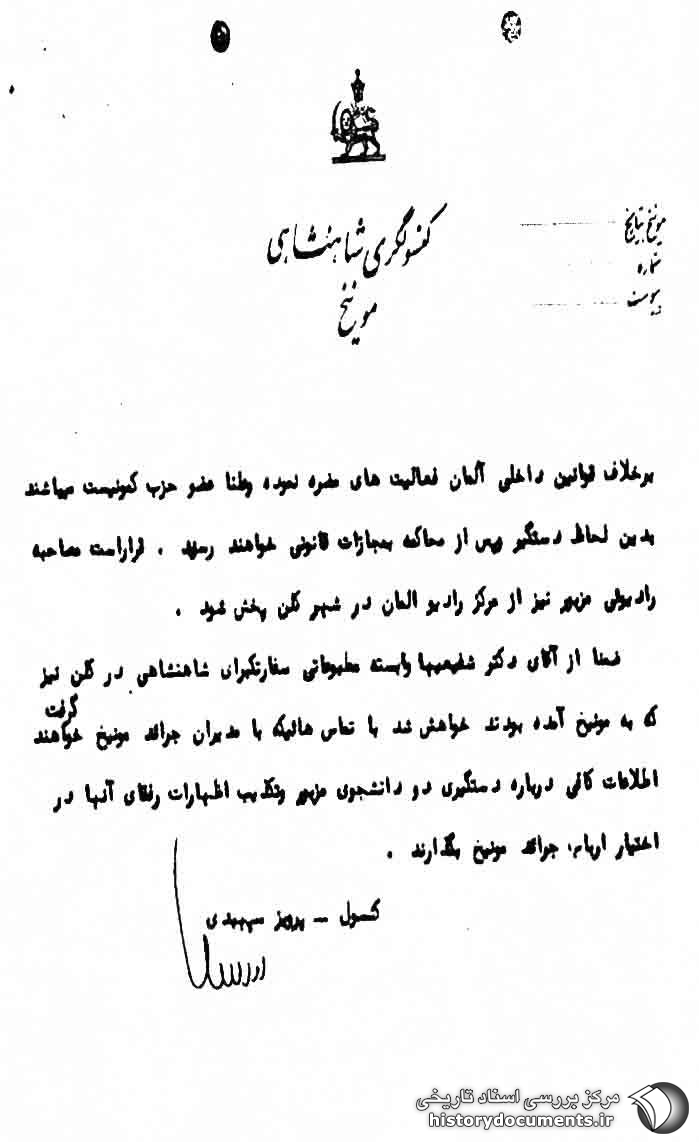 کنسولگری شاهنشاهی
مونیخ
مونیخ بتاریخ
شماره
پیوست
برخلاف قوانین داخلی آلمان فعالیت های مضره نموده وظنا عضو حزب کمونیست میباشند
بدین لحاظ دستگیر وپس از محاکمه بمجازات قانونی خواهند رسید . قراراست مصاحبه
رادیوئی مزبور نیز از مرکز رادیو المان در شهر کلن پخش شود .
ضمنا از آقای دکتر شفیعیها وابسته مطبوعاتی سفارتکبرای شاهنشاهی در کلن نیز
که به مونیخ آمده بودند خواهش شد با تماس هائیکه با مدیران جرائد مونیخ خواهند گرفت
اطلاعات کافی درباره دستگیری دو دانشجوی مزبور وتکذیب اظهارات رفقای آنها در
اختیار ارباب جرائد مونیخ بگذارند .
کنسول – پرویز سپهبدی
مرکز بررسی اسناد تاریخی
historydocuments.ir